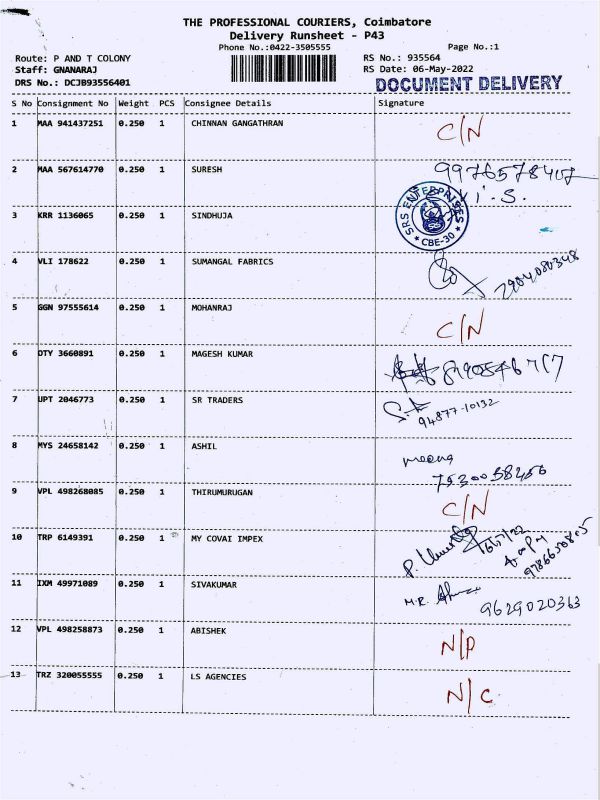 THE PROFESSIONAL COURIERS, Coimbatore
Delivery Runsheet - P43
Phone No.:0422-3505555 Page No.:1
Route: P AND T COLONY RS No.: 935564
Staff: GNANARAJ RS Date: 06-May-2022
DRS No.: DCJB93556401 DOCUMENT DELIVERY
S No Consignment No Weight PCS Consignee Details Signature
1 MAA 941437251 0.250 1 CHINNAN GANGATHRAN C/N
2 MAA 567614770 0.250 1 SURESH 9976578407
V.S.
SRS ENTERPRISES
* CBE-30 *
3 KRR 1136065 0.250 1 SINDHUJA
4 VLI 178622 0.250 1 SUMANGAL FABRICS
5 GGN 97555614 0.250 1 MOHANRAJ C/N
6 DTY 3660891 0.250 1 MAGESH KUMAR
7 UPT 2046773 0.250 1 SR TRADERS
94877-10132
8 MYS 24658142 0.250 1 ASHIL meena
9 VPL 498268085 0.250 1 THIRUMURUGAN C/N
10 TRP 6149391 0.250 1 MY COVAI IMPEX
9786650805
11 IXM 49971089 0.250 1 SIVAKUMAR M.R. 9629020363
12 VPL 498258873 0.250 1 ABISHEK N/P
13 TRZ 320055555 0.250 1 LS AGENCIES N/C